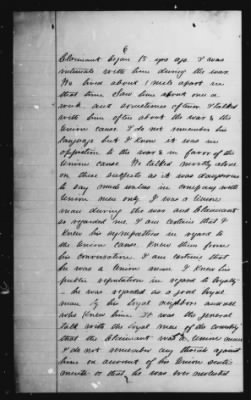 6
Claimant began 15 yrs ago I was
intimate with him during the war.
We lived about 1 mile apart in
that time Saw him about once a
week and sometimes oftener I talked
with him often about the war & the
Union cause I do not remember his
language but I know it was in
opposition to the war & in favor of the
Union cause We talked mostly alone
on these subjects as it was dangerous
to say much unless in company with
Union men only I was a Union
man during the war and Claimant
so regarded me I am certain that I
knew his sympathies in regard to
the Union cause. Knew them from
his conversation. I am certain that
he was a Union man. I knew his
public reputation in regard to loyalty
he was regarded as a good loyal
man by his loyal neighbors and all
who knew him. It was the general
talk with the loyal men of the country
that the Claimant was a Union man
I do not remember any threats against
him on account of his Union senti-
ments or that he was ever molested